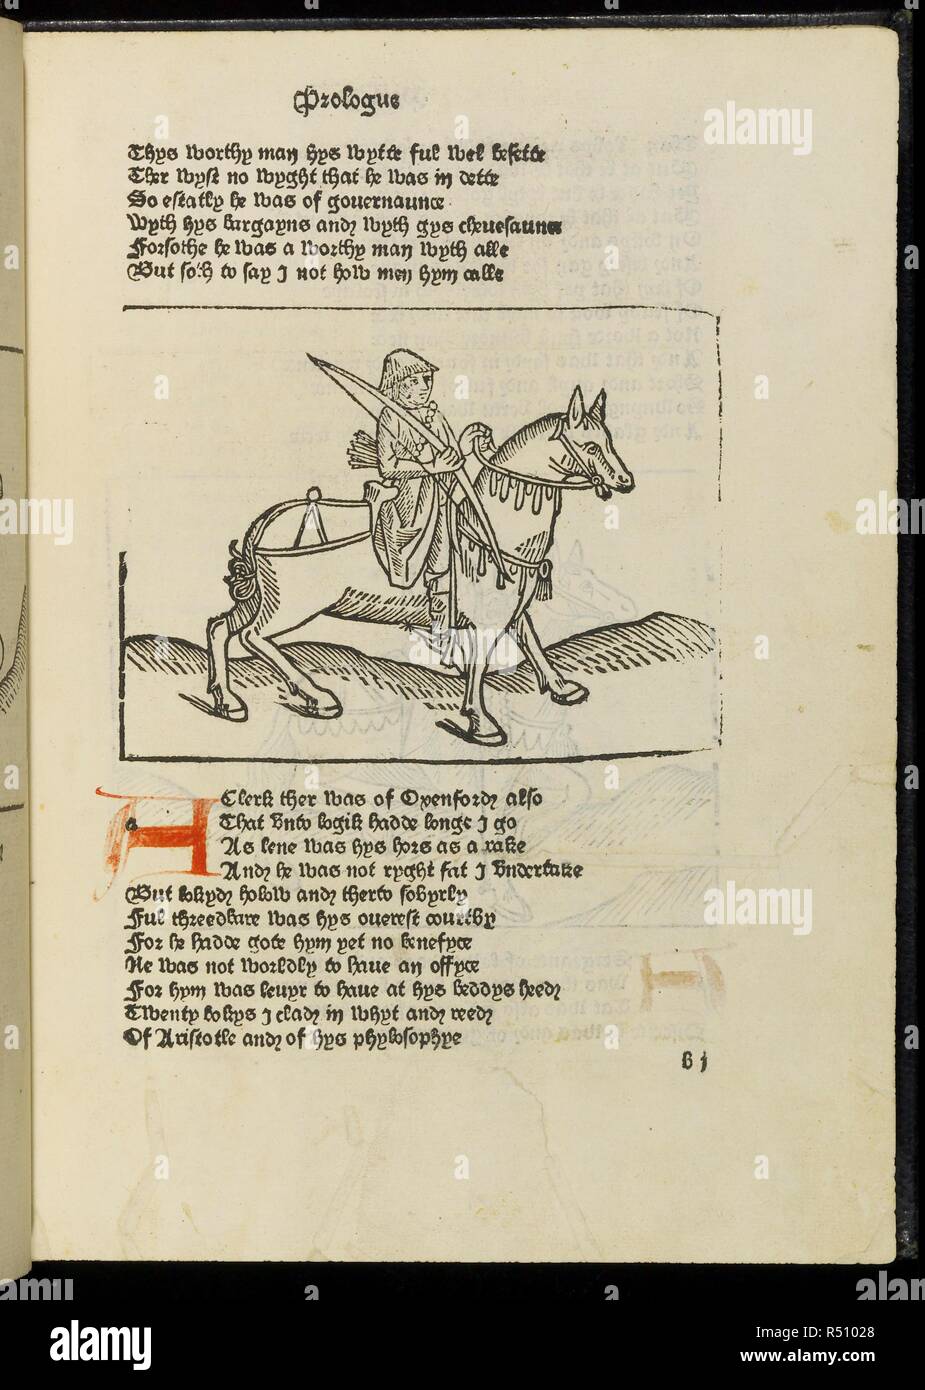 Prologue
Thys worthy man hys wytte ful wel besette
Ther wyst no wyght that he was in dette
So estatly he was of gouernaunce
Wyth hys bargayns and wyth gys cheuesaunce
Forsothe he was a worthy man wyth alle
But soth to say I not how men hym calle
A
a
CLerk ther was of Oxenford also
That vnto logik hadde longe I go
As lene was hys hors as a rake
And he was not ryght fat I vndertake
But lokyd holow and therto sobyrly
Ful threedbare was hys ouerest courtby
For he hadde gote hym yet no benefyce
Ne was not worldly to haue an offyce
For hym was leuyr to haue at hys beddys heed
Twenty bokys I clad in whyt and reed
Of Aristotle and of hys phylosophye
b j
alamy
Image ID: R51028
www.alamy.com